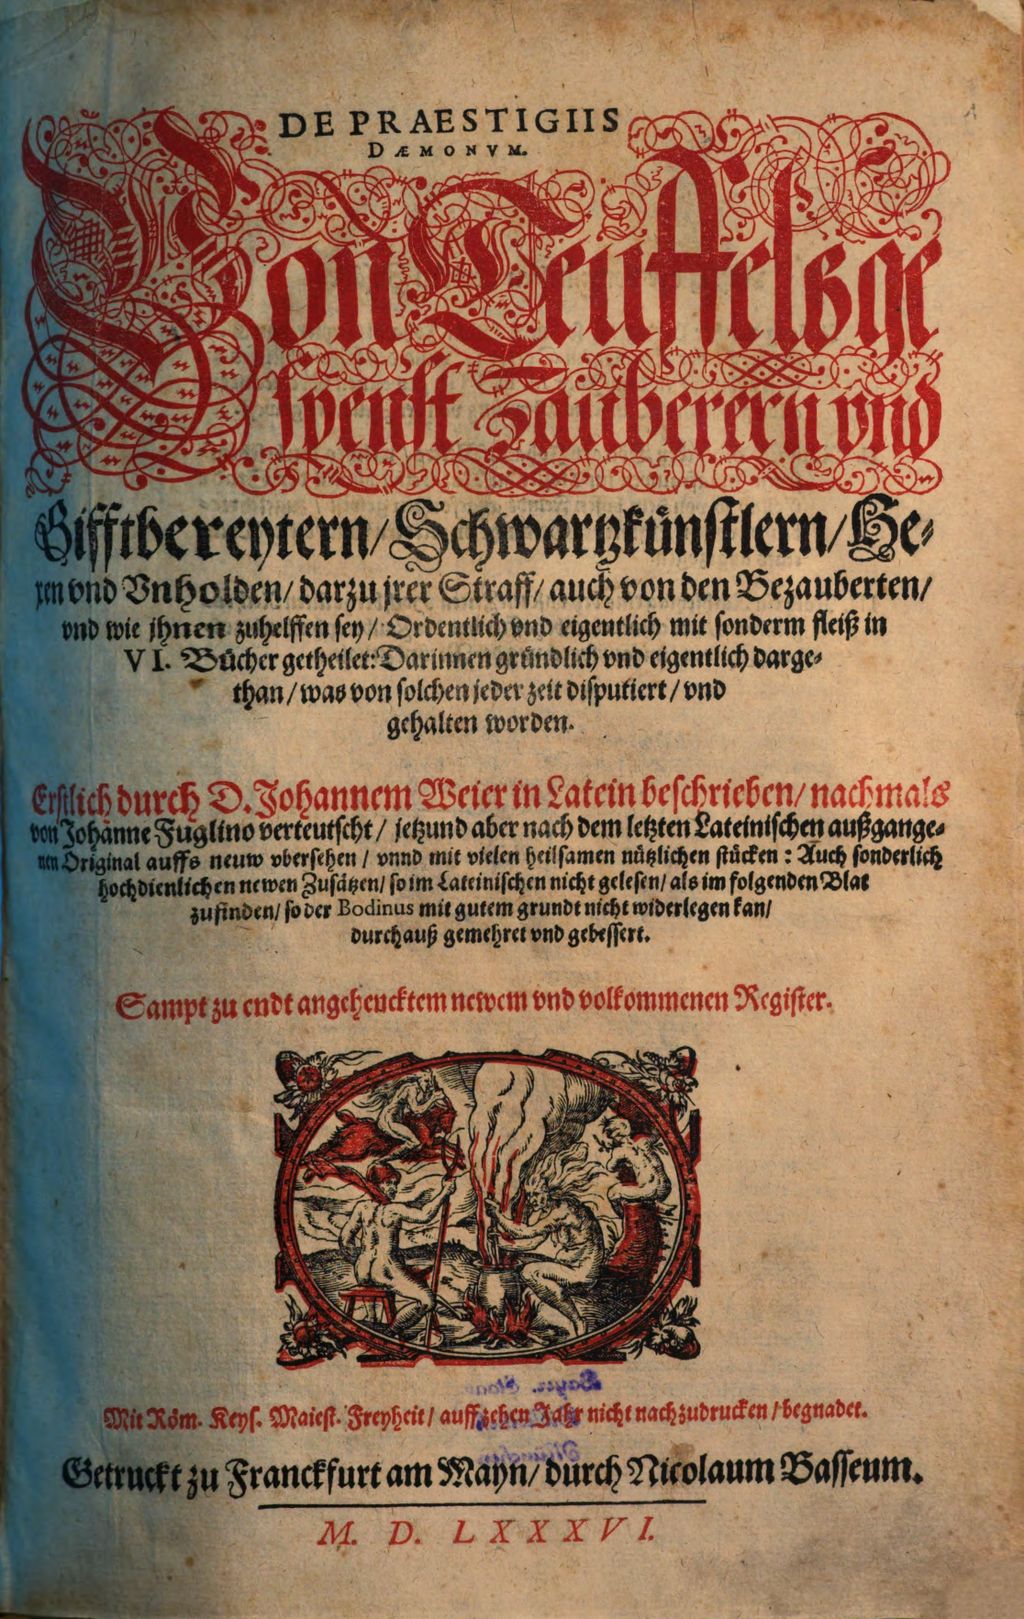 DE PRAESTIGIIS
DÆMONVM.
Von Teuffelsge
spenst Zauberern vnd
Gifftbereytern/ Schwartzkünstlern/ He⸗
xen vnd Vnholden/ darzu jrer Straff/ auch von den Bezauberten/
vnd wie jhnen zuhelffen sey/ Ordentlich vnd eigentlich mit sonderm fleiß in
VI. Bücher getheilet: Darinnen gründlich vnd eigentlich darge⸗
than/ was von solchen jeder zeit disputiert/ vnd
gehalten worden.
Erstlich durch D. Johannem Weier in Latein beschrieben/ nachmals
von Johanne Fuglino verteutscht/ jetzund aber nach dem letzten Lateinischen außgange⸗
nen Original auffs neuw vbersehen/ vnnd mit vielen heilsamen nützlichen stücken: Auch sonderlich
hochdienlichen newen Zusätzen/ so im Lateinischen nicht gelesen/ als im folgenden Blat
zufinden/ so der Bodinus mit gutem grundt nicht widerlegen kan/
durchauß gemehret vnd gebessert.
Sampt zu endt angehencktem newem vnd volkommenen Register.
Mit Röm. Keys. Maiest. Freyheit/ auff zehen Jahr nicht nachzudrucken/ begnadet.
Getruckt zu Franckfurt am Mayn/ durch Nicolaum Basseum.
M. D. LXXXVI.